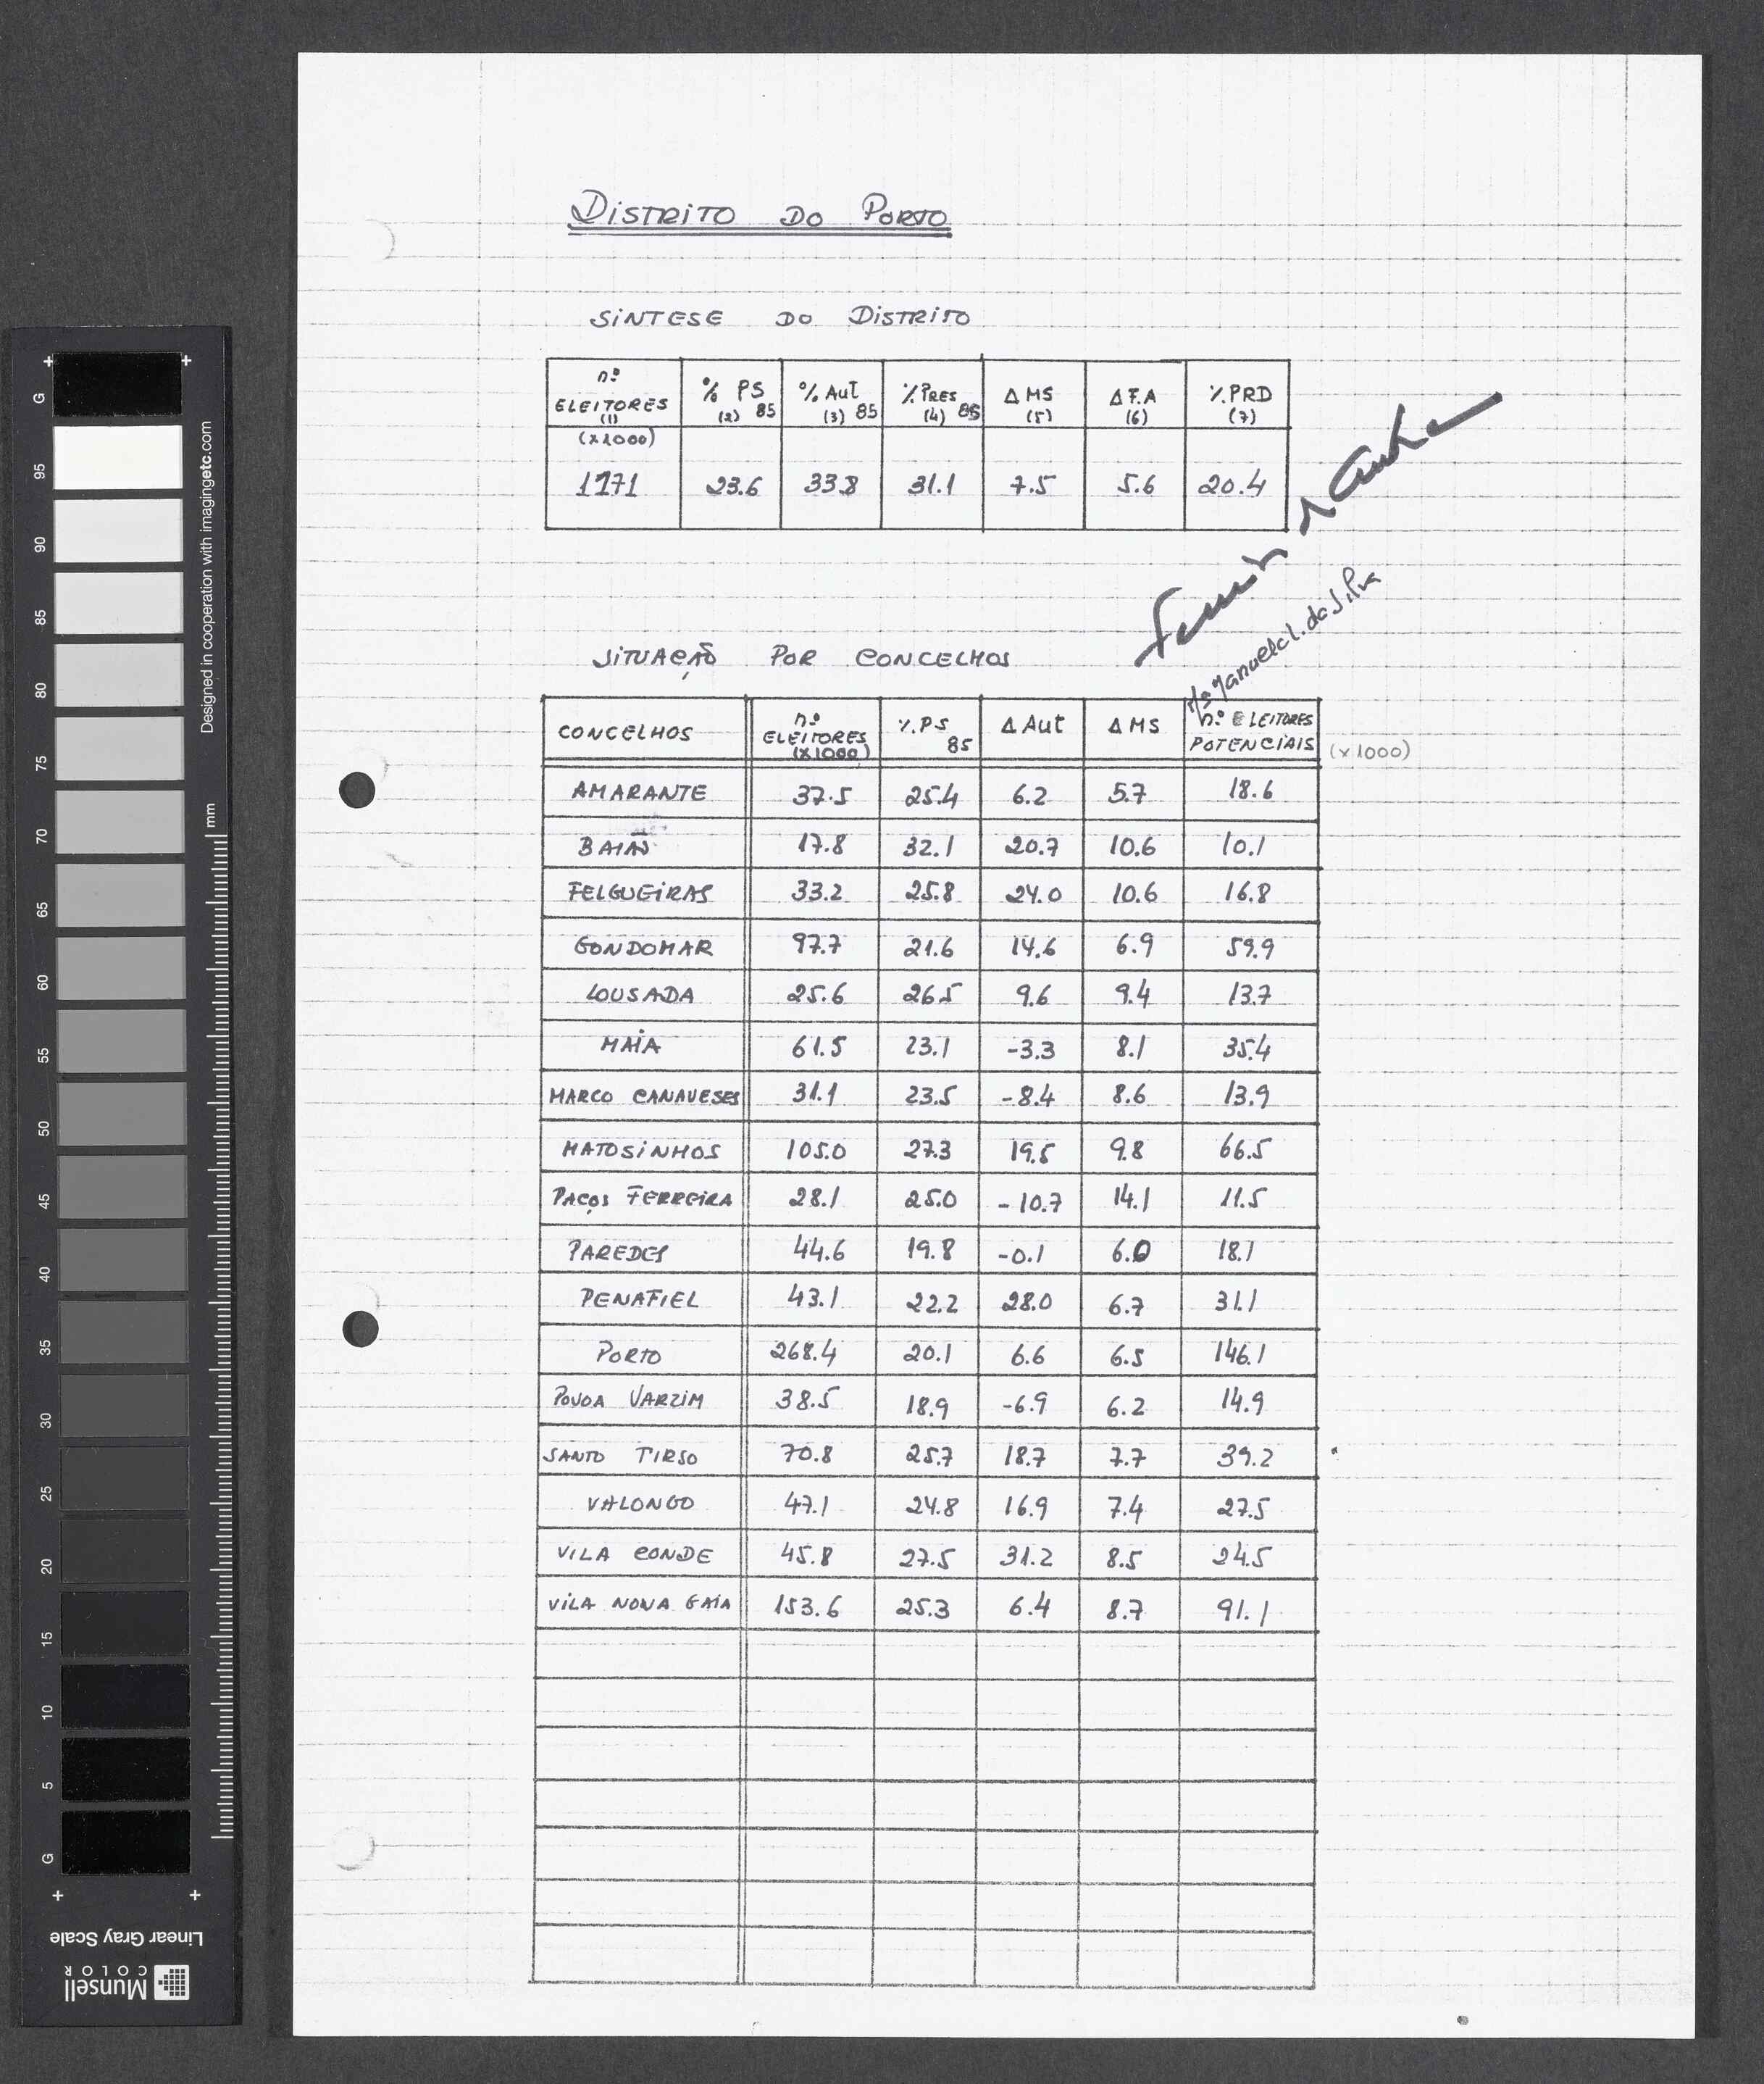 DISTRITO DO PORTO
SINTESE DO DISTRITO
nº ELEITORES (1) % PS (2) 85 % Aut (3) 85 % PRES (4) 85 Δ MS (5) Δ F.A (6) % PRD (7)
(x1000)
1171 23.6 33.8 31.1 7.5 5.6 20.4
Mª Manuela L. da Silva
SITUAÇÃO POR CONCELHOS
CONCELHOS nº ELEITORES (x1000) % PS 85 Δ Aut Δ MS nº ELEITORES POTENCIAIS (x1000)
AMARANTE 37.5 25.4 6.2 5.7 18.6
BAIÃO 17.8 32.1 20.7 10.6 10.1
FELGUEIRAS 33.2 25.8 24.0 10.6 16.8
GONDOMAR 97.7 21.6 14.6 6.9 59.9
LOUSADA 25.6 26.5 9.6 9.4 13.7
MAIA 61.5 23.1 -3.3 8.1 35.4
MARCO CANAVESES 31.1 23.5 -8.4 8.6 13.9
MATOSINHOS 105.0 27.3 19.5 9.8 66.5
PAÇOS FERREIRA 28.1 25.0 -10.7 14.1 11.5
PAREDES 44.6 19.8 -0.1 6.0 18.1
PENAFIEL 43.1 22.2 28.0 6.7 31.1
PORTO 268.4 20.1 6.6 6.5 146.1
POVOA VARZIM 38.5 18.9 -6.9 6.2 14.9
SANTO TIRSO 70.8 25.7 18.7 7.7 39.2
VALONGO 47.1 24.8 16.9 7.4 27.5
VILA CONDE 45.8 27.5 31.2 8.5 24.5
VILA NOVA GAIA 153.6 25.3 6.4 8.7 91.1
G 95 90 85 80 75 70 65 60 55 50 45 40 35 30 25 20 15 10 5 G
Designed in cooperation with imagingetc.com
mm
Linear Gray Scale
Munsell
COLOR